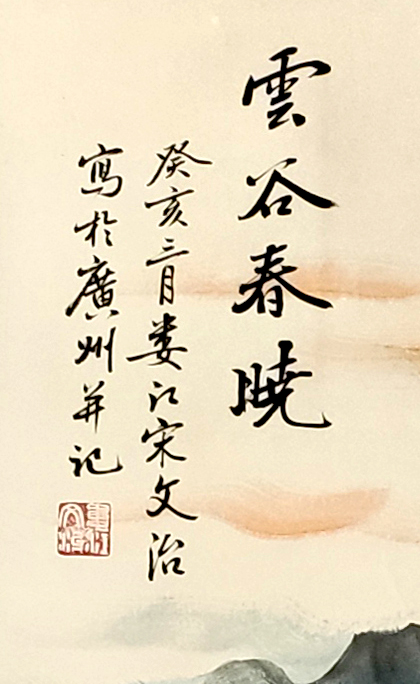 雲谷春曉
癸亥三月娄江宋文治
寫於廣州并记